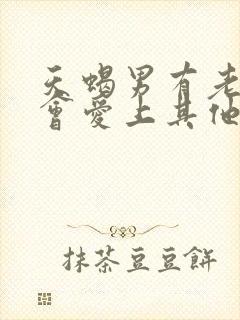 天蝎男有老
會愛上其他
抹茶豆豆餅